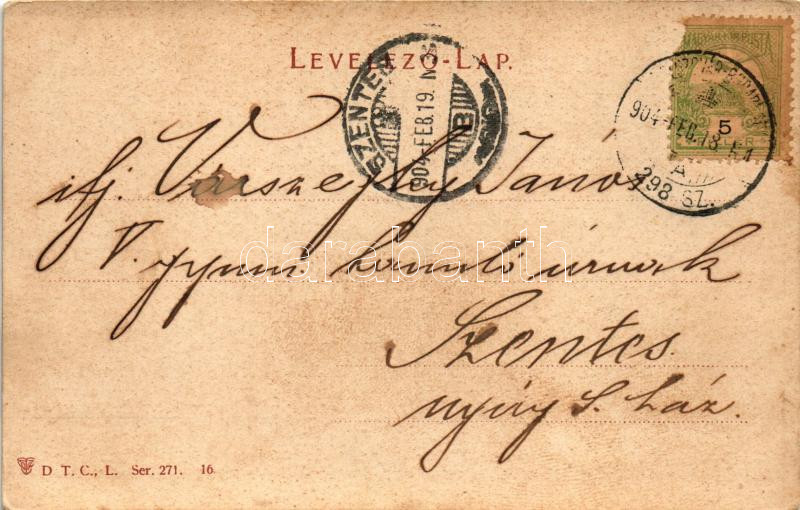 LEVELEZŐ-LAP.
MAGYAR KIR. POSTA
5
904 FEB. 18.
298 SZ.
SZENTES
904 FEB. 19. N
B
ifj. Várszeghy János
V. gymn. tanuló úrnak
Szentes
ház.
darabanth
D T. C., L. Ser. 271. 16.